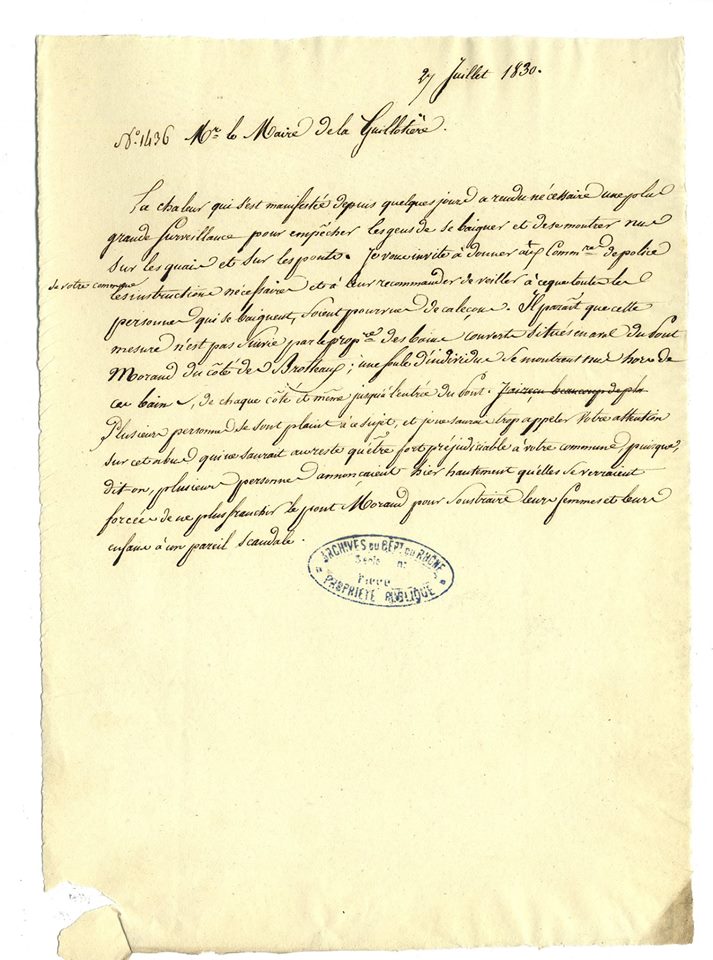 27 Juillet 1830.
N.º 1436 Mr. le Maire de la Guillotière.
La chaleur qui s'est manifestée depuis quelques jours a rendu nécessaire une plus
grande surveillance pour empêcher les gens de se baigner et de se montrer nus
sur les quais et sur les ponts. Je vous invite à donner aux Commres de police
de votre commune
les instructions nécessaires et à leur recommander de veiller à ce que toutes les
personnes qui se baignent, soient pourvues de caleçons. Il paraît que cette
mesure n'est pas suivie par le propre des bains couverts situés en aval du Pont
Morand du côté des Brotteaux ; une foule d'individus se montrent nus hors de
ces bains, de chaque côté et même jusqu'à l'entrée du Pont. J'ai reçu beaucoup de pls
Plusieurs personnes se sont plaint à ce sujet, et je ne saurais trop appeler votre attention
sur cet abus qui ne saurait au reste qu'être fort préjudiciable à votre commune, puisque,
dit-on, plusieurs personnes annoncaient hier hautement qu'elles se verraient
forcées de ne plus franchir le pont Morand pour soustraire leurs femmes et leurs
enfans à un pareil scandale.
ARCHIVES DU DÉPT DU RHÔNE
Série n°
Pièce
PROPRIÉTÉ PUBLIQUE